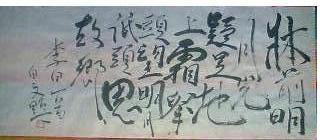 牀前明
月光
疑是地
上霜舉
頭望明月
低頭思
故鄉
李白